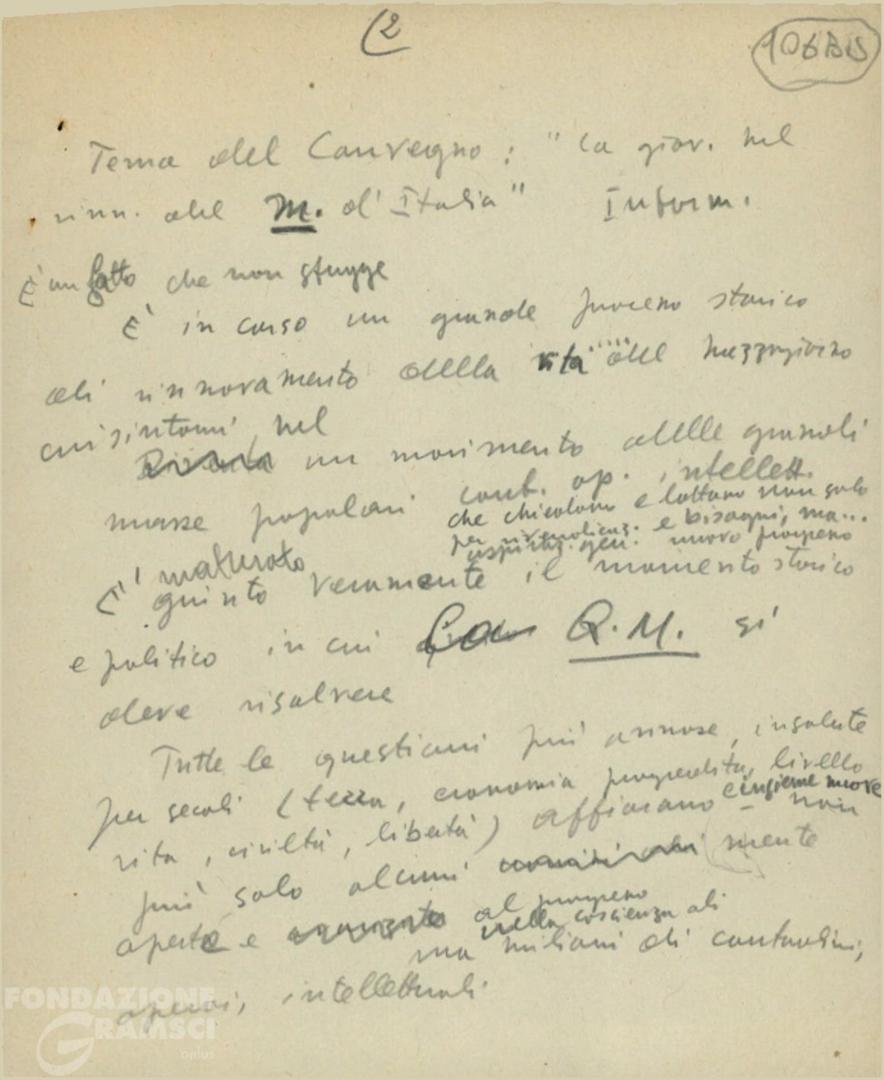 (2
106BIS
Tema del Convegno: "La giov. nel
rinn. del M. d'Italia" Inform.
È un fatto che non sfugge
È in corso un grande processo storico
di rinnovamento della vita del Mezzogiorno
cui sintomi, nel
un movimento delle grandi
masse popolari cont. op. intellett.
che chiedono e lottano non solo
per rivendicaz. e bisogni, ma...
aspiraz. gen. nuovo progresso
È maturato
giunto veramente il momento storico
e politico in cui La Q.M. si
deve risolvere
Tutte le questioni più annose, insolute
per secoli (terra, economia progredita, livello
vita, civiltà, libertà) affiorano e insieme nuove
non
più solo alcuni mente
aperte e al progresso
nella coscienza di
ma milioni di contadini,
operai, intellettuali
FONDAZIONE
GRAMSCI
onlus